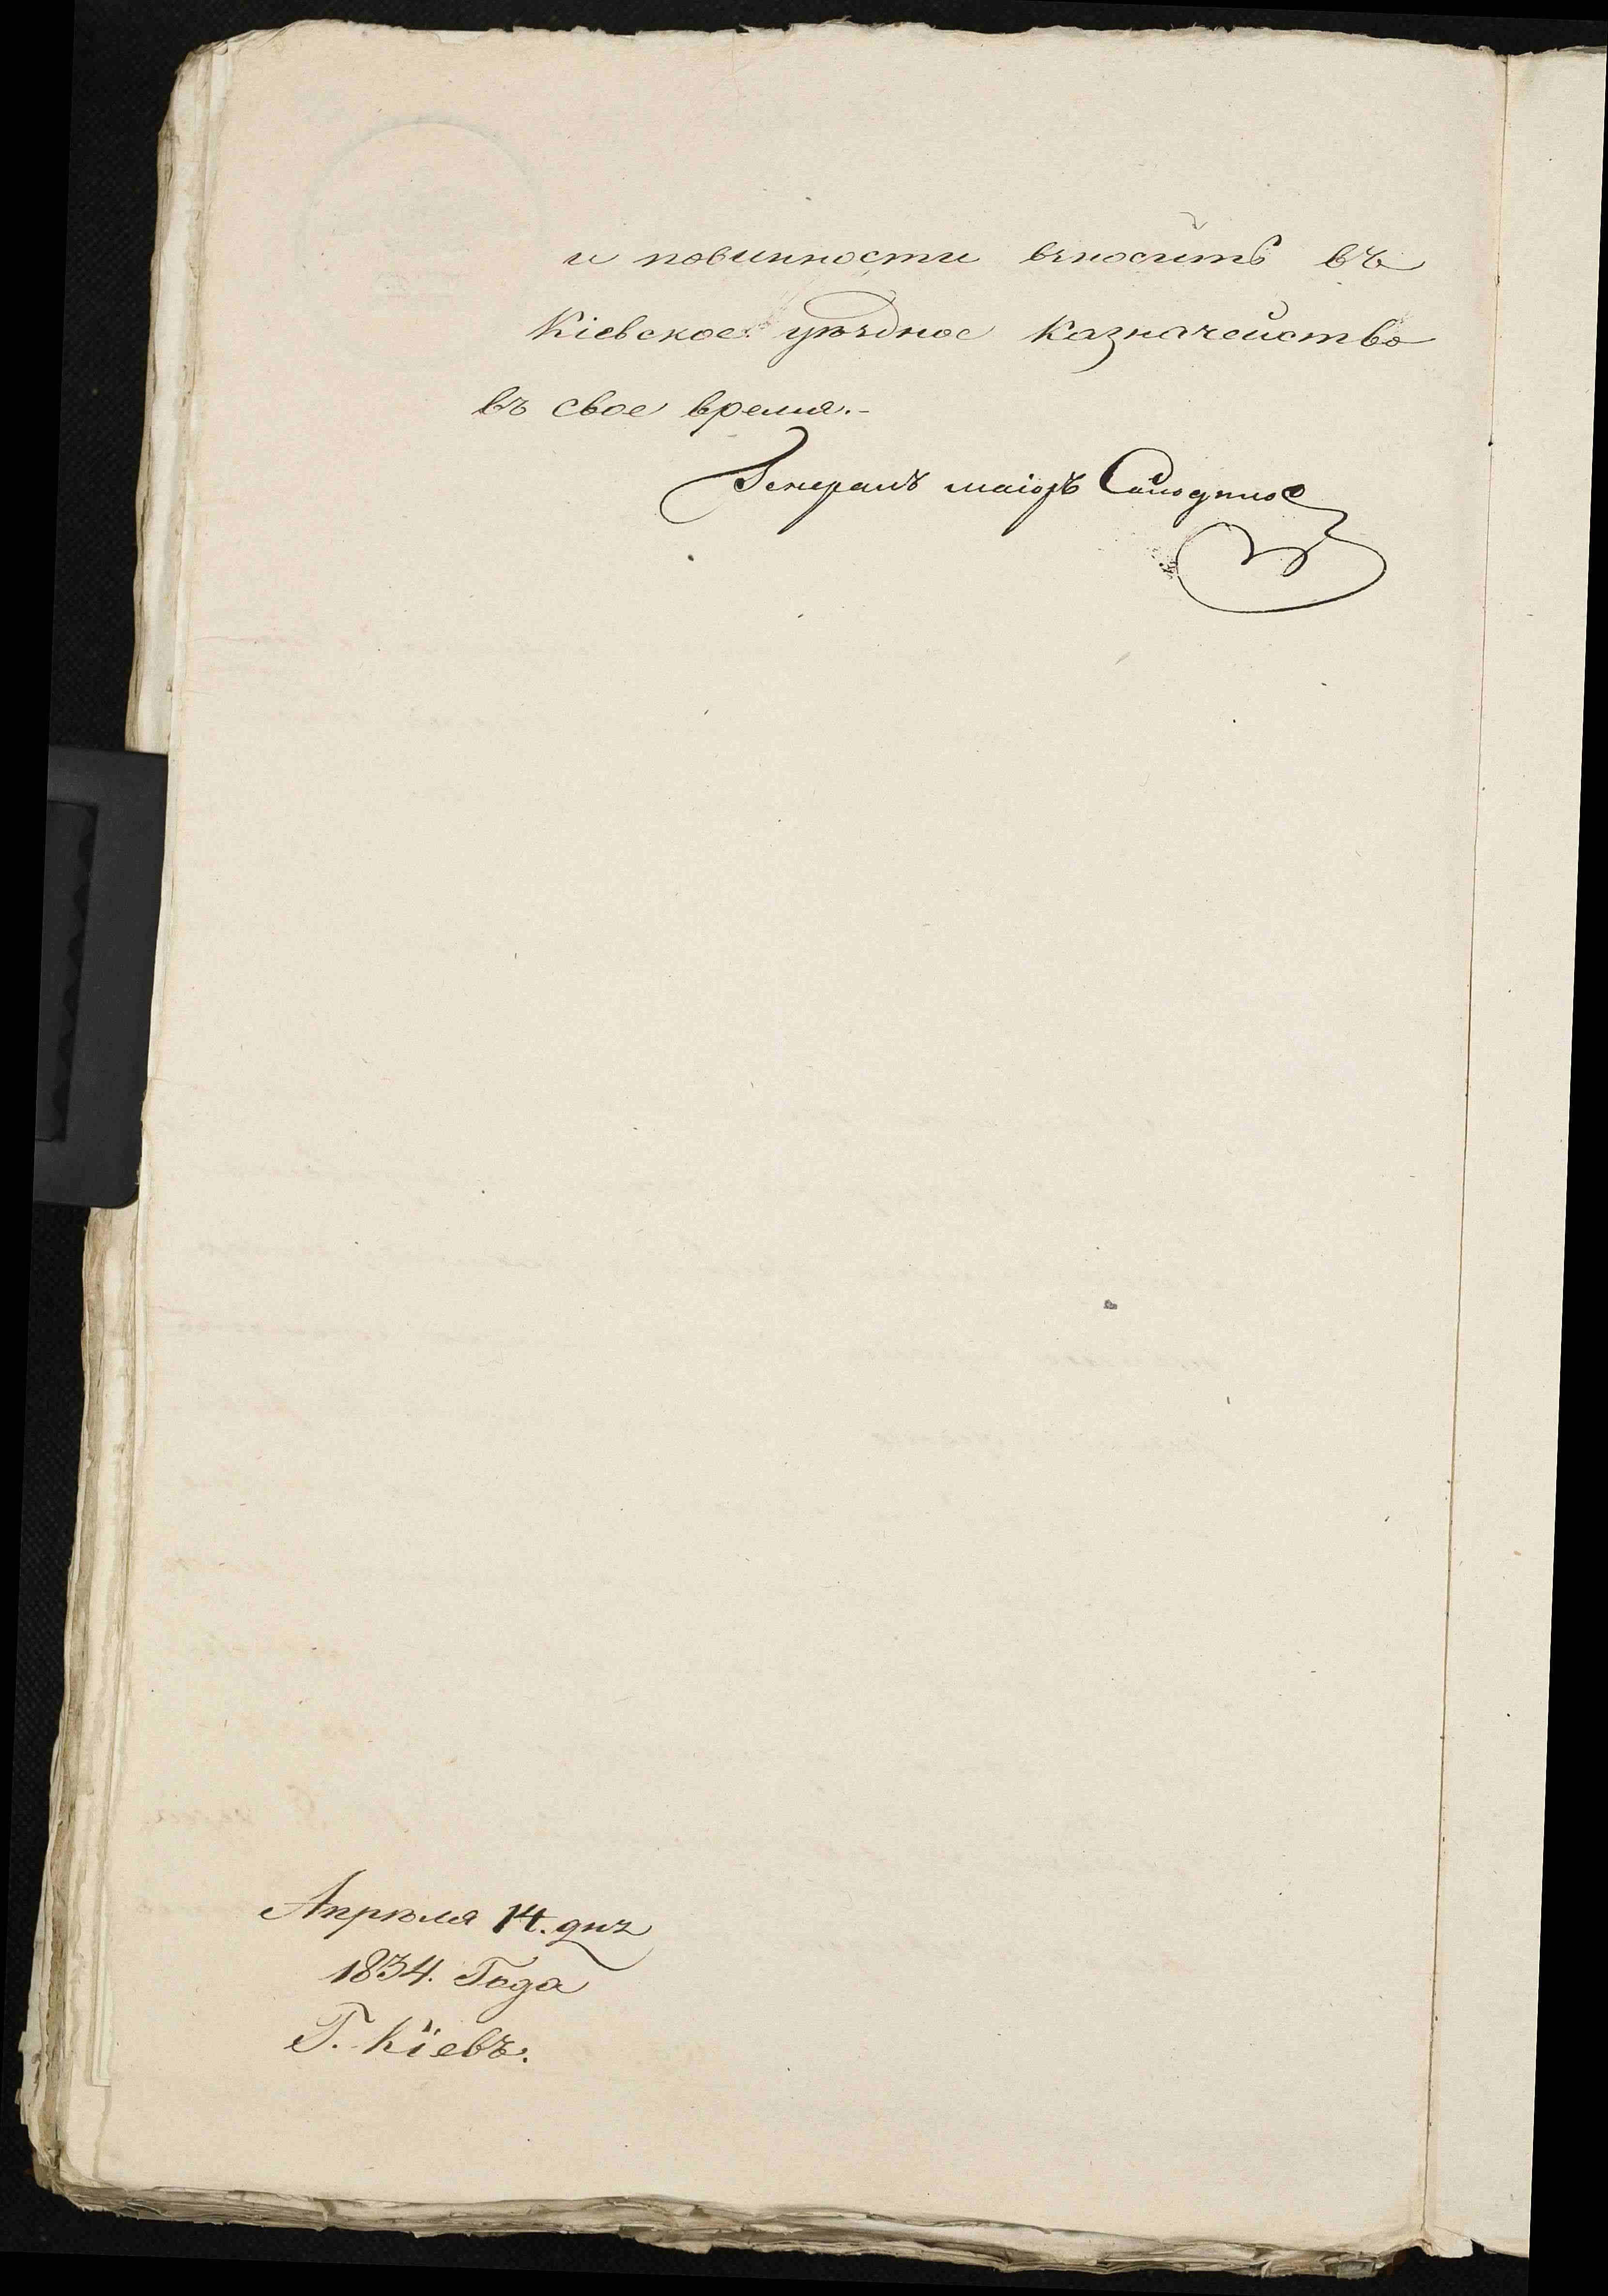 и повинности вносить въ
Кіевское уѣздное Казначейство
въ свое время.-
Генералъ маіоръ
Апрѣля 14. дня
1834. Года
Г. Кіевъ.